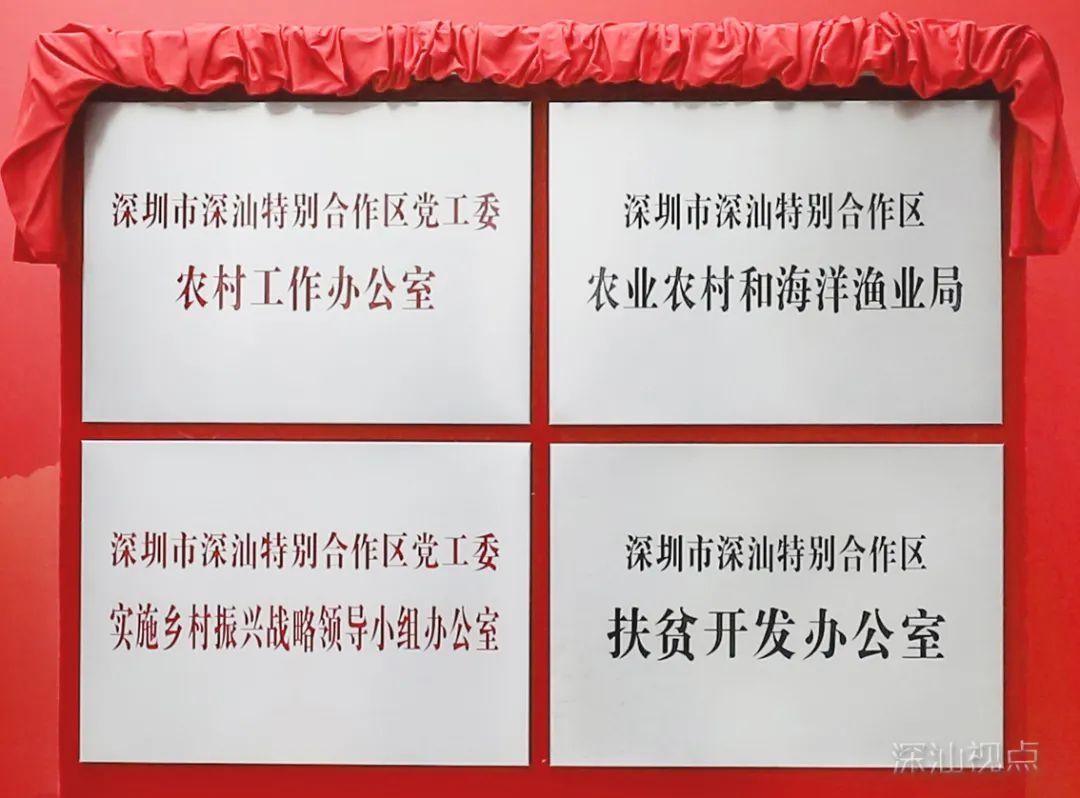 深圳市深汕特别合作区党工委
农村工作办公室
深圳市深汕特别合作区
农业农村和海洋渔业局
深圳市深汕特别合作区党工委
实施乡村振兴战略领导小组办公室
深圳市深汕特别合作区
扶贫开发办公室
深汕视点